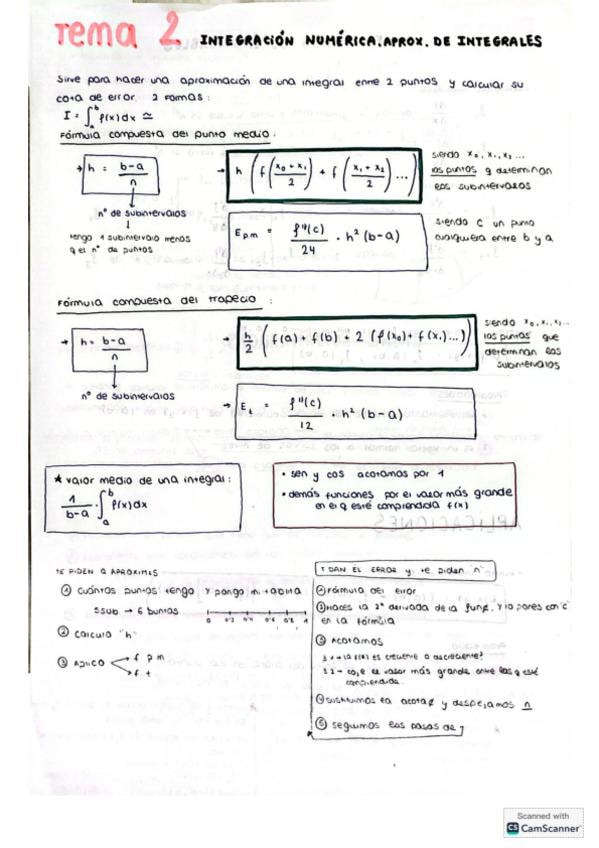 Tema 2 INTEGRACIÓN NUMÉRICA. APROX. DE INTEGRALES
Sirve para hacer una aproximación de una integral entre 2 puntos y calcular su
cota de error. 2 formas:
I = ∫ₐᵇ f(x)dx ≃
Fórmula compuesta del punto medio.
→ h = (b-a)/n
→ h ( f((x₀+x₁)/2) + f((x₁+x₂)/2) ... )
siendo x₀, x₁, x₂...
los puntos q determinan
los subintervalos
nº de subintervalos
→ tengo 1 subintervalo menos
q el nº de puntos
E p.m = f''(c)/24 · h² (b-a)
siendo c un punto
cualquiera entre b y a
Fórmula compuesta del trapecio :
→ h = b-a/n
→ h/2 ( f(a) + f(b) + 2 (f(x₀) + f(x₁)...) )
siendo x₀, x₁, x₂...
los puntos que
determinan los
subintervalos
nº de subintervalos
→ E t = f''(c)/12 · h² (b-a)
★ valor medio de una integral:
1/(b-a) · ∫ₐᵇ f(x)dx
• sen y cos acotamos por 1
• demás funciones por el valor más grande
en el q esté comprendida f(x)
TE PIDEN Q APROXIMES
① Cuántos puntos tengo y pongo mi tabla
5 sub → 6 puntos
0 0'2 0'4 0'6 0'8 1
② Calculo "h"
③ Aplico
f p m
f t
T DAN EL ERROR y te piden "n"
① Fórmula del error
② Haces la 2ª derivada de la func. y la pones con "c"
en la fórmula
③ Acotamos
3.1 → la f(x) es creciente o decreciente?
3.2 → coje el valor más grande entre los q esté
comprendida.
④ sustituimos la acota y despejamos n
⑤ seguimos los pasos de
Scanned with
CS CamScanner